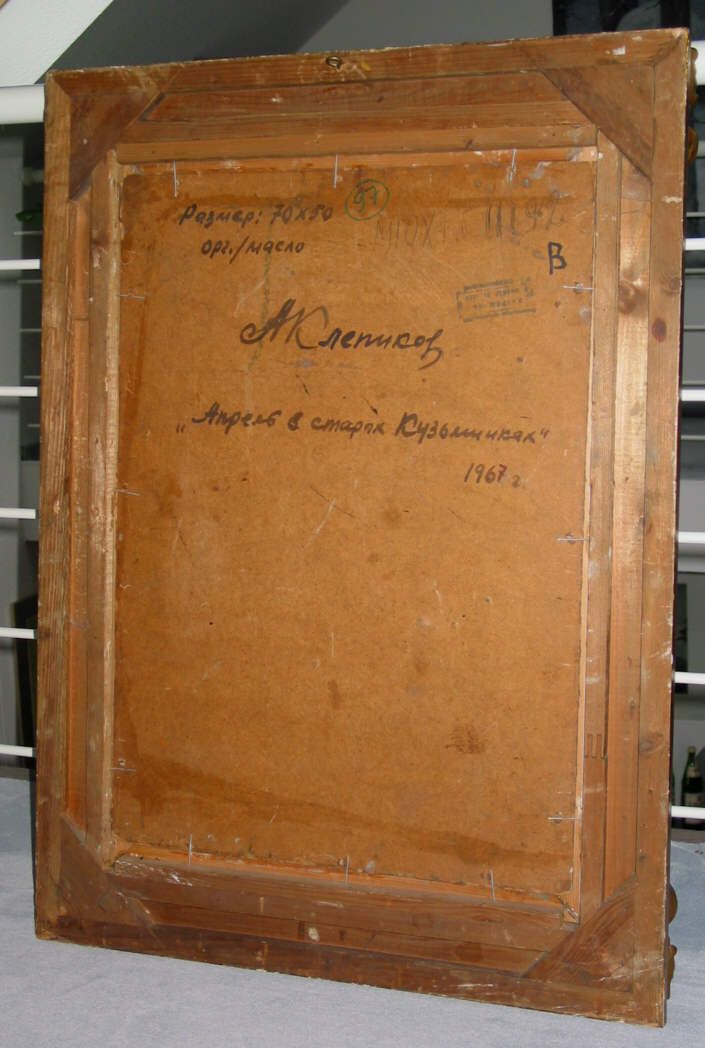 Размер: 70х50
97
орг./масло
В
АКлепиков
„Апрель в старых Кузьминках"
1967 г.